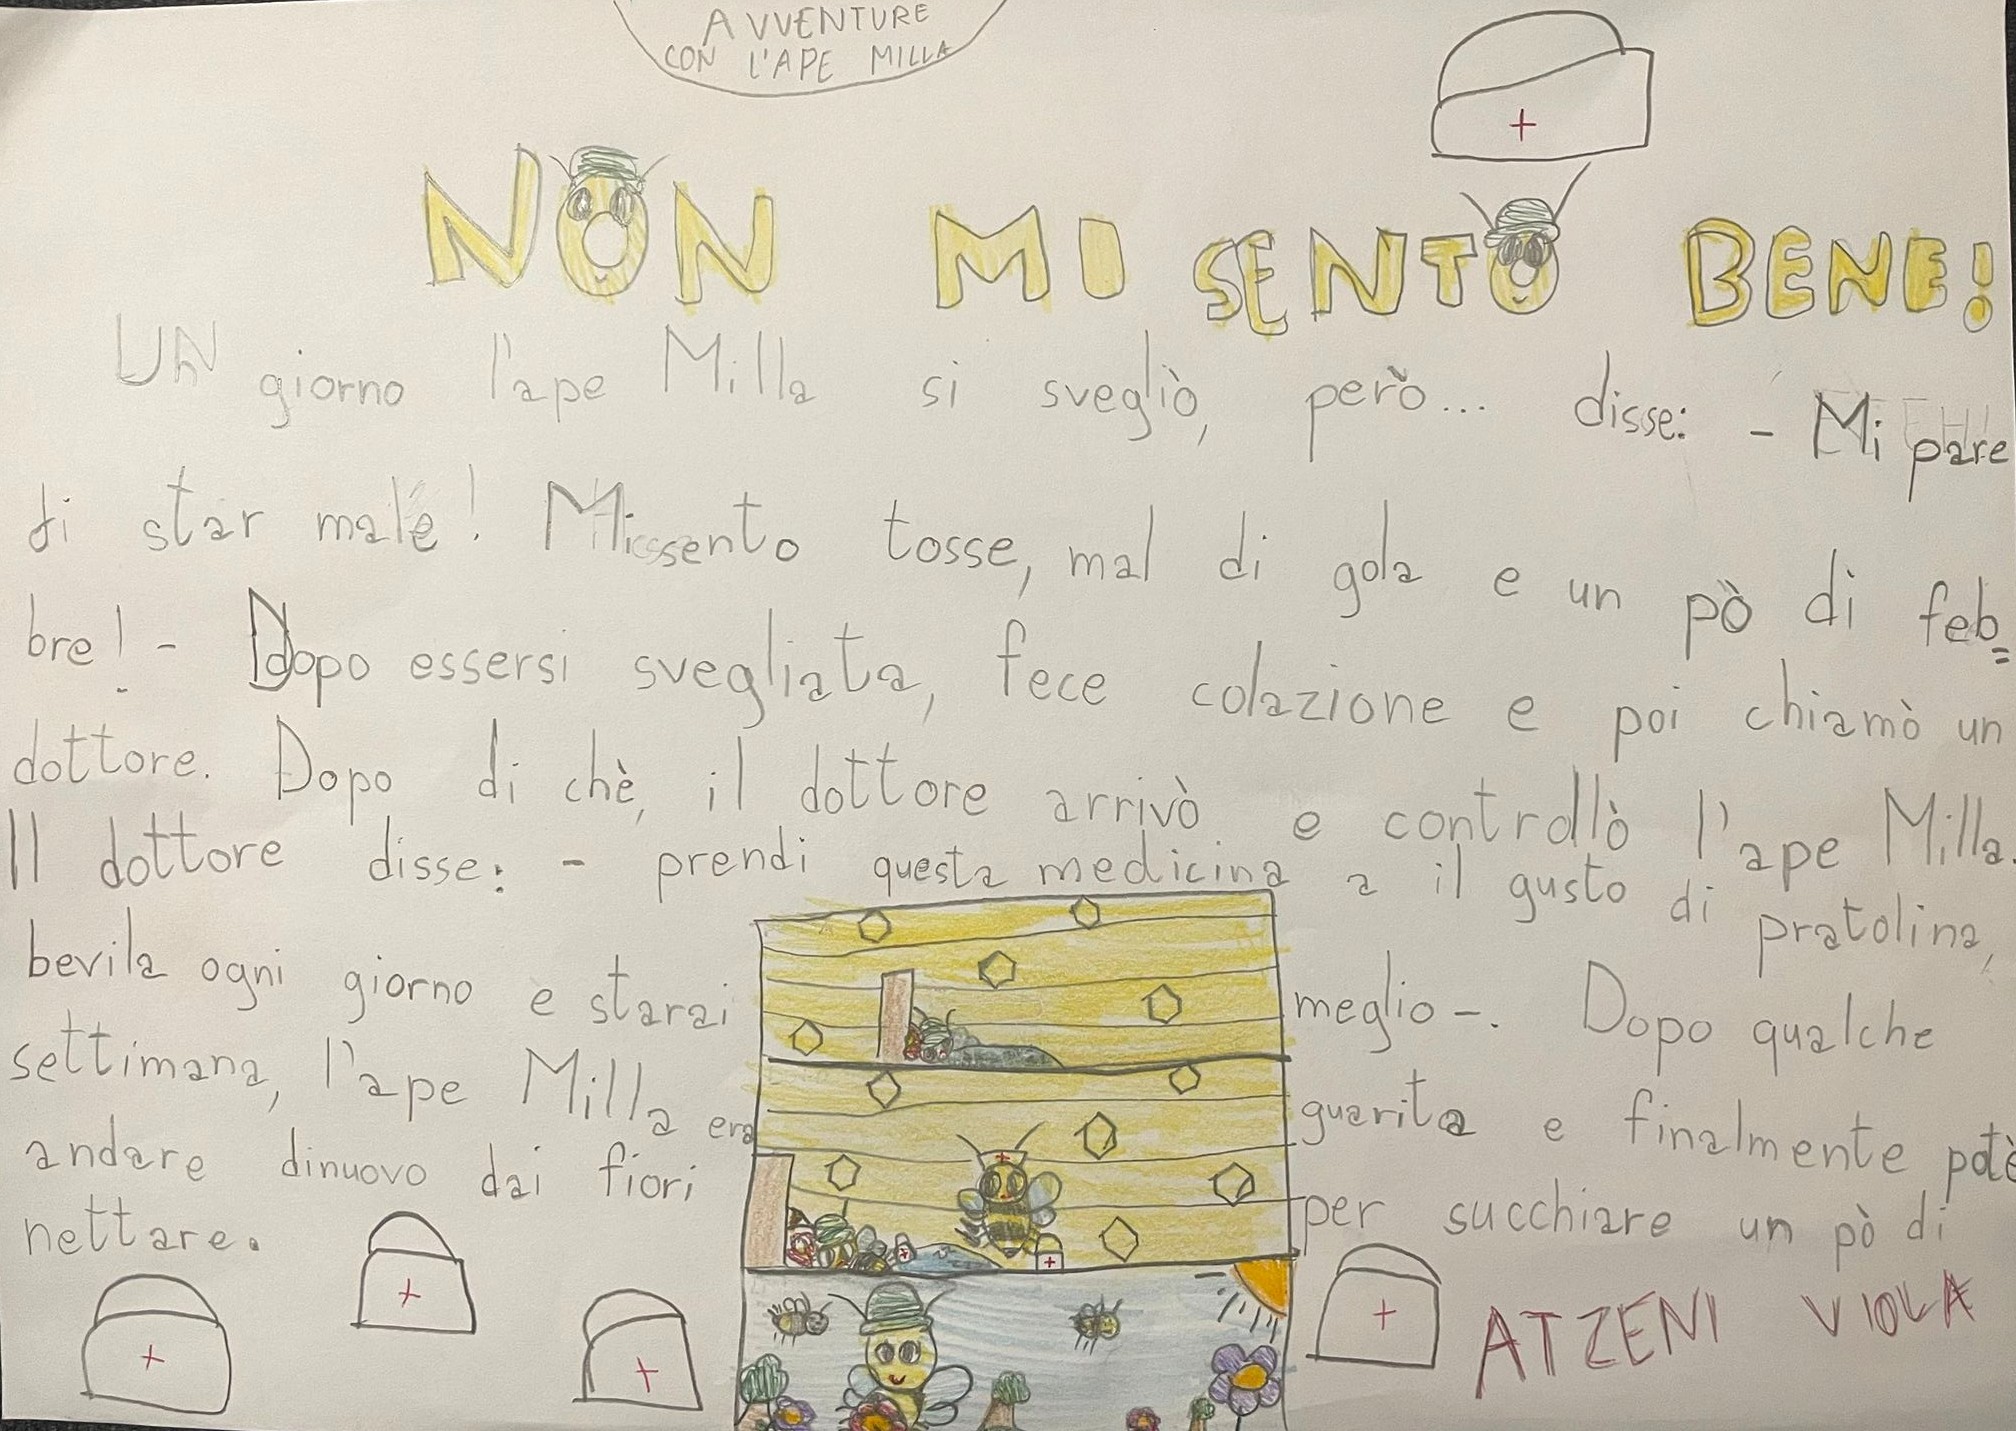 AVVENTURE
CON L'APE MILLA
NON MI SENTO BENE!
UN giorno l'ape Milla si svegliò, però... disse: - Mi pare
di star male! Mi sento tosse, mal di gola e un pò di feb=
bre! - Dopo essersi svegliata, fece colazione e poi chiamò un
dottore. Dopo di chè, il dottore arrivò e controllò l'ape Milla.
Il dottore disse: - prendi questa medicina a il gusto di pratolina,
bevila ogni giorno e starai meglio -. Dopo qualche
settimana, l'ape Milla era guarita e finalmente potè
andare dinuovo dai fiori per succhiare un pò di
nettare.
ATZENI VIOLA